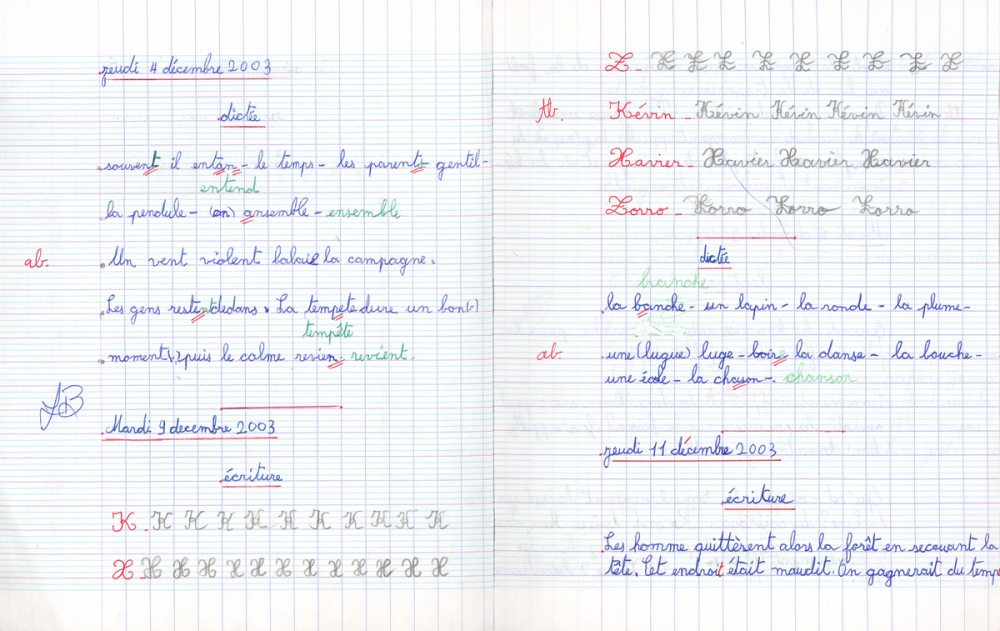 jeudi 4 décembre 2003
dictée
souvent il entan - le temps - les parents gentil -
entend
la pendule - (an) ansemble - ensemble
ab. Un vent violent balaie la campagne.
Les gens restent dedans. La tempete dure un bon (-)
tempête
moment, puis le calme revien. revient.
Mardi 9 decembre 2003
écriture
K - K K K K K K K K K K
X - X X X X X X X X X X X X
Z - Z Z Z Z Z Z Z Z Z
tb. Kévin - Kévin Kévin Kévin Kévin
Xavier - Xavier Xavier Xavier
Zorro - Zorro Zorro Zorro
dictée
branche
la banche - un lapin - la ronde - la plume -
ab. une (lugue) luge - boir la danse - la bouche -
une école - la chason - chanson
jeudi 11 décembre 2003
écriture
Les homme quittèrent alors la forêt en secouant la
tête. Cet endroit était maudit. On gagnerait du temp